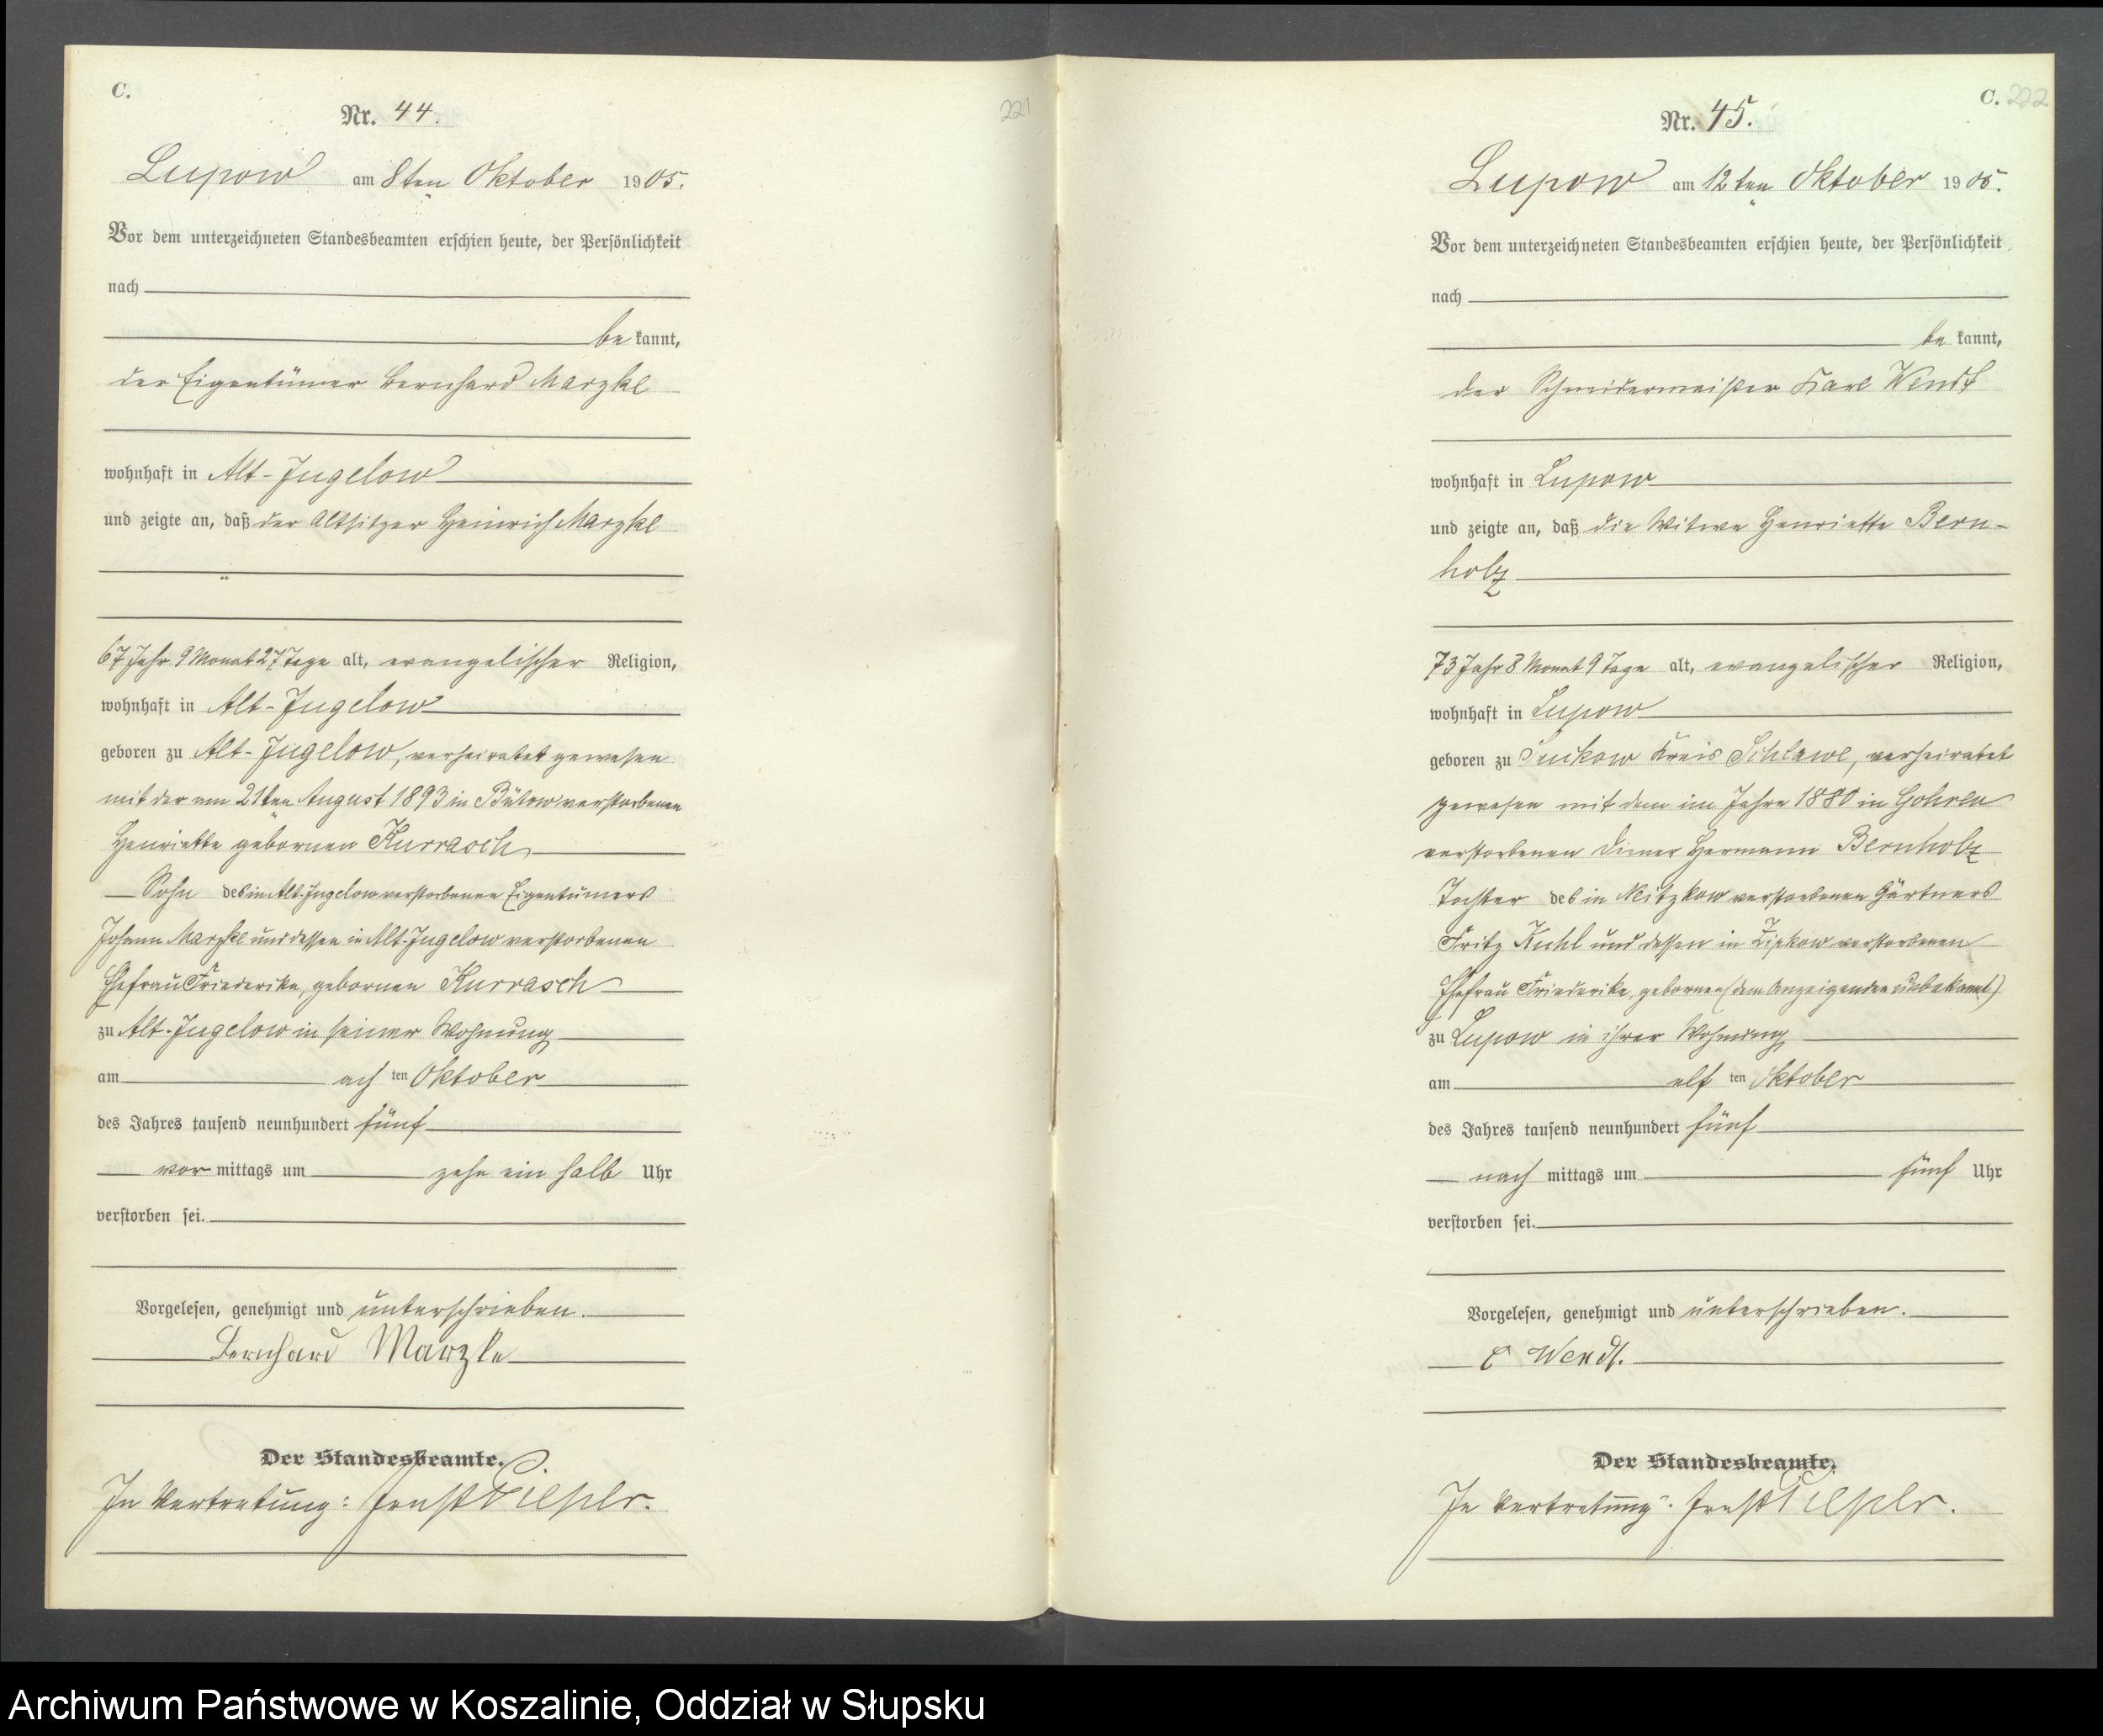 C.
Nr. 44.
Lupow am 8ten Oktober 1905.
Vor dem unterzeichneten Standesbeamten erschien heute, der Persönlichkeit
nach
be kannt,
der Eigentümer Bernhard Marzke
wohnhaft in Alt-Jugelow
und zeigte an, daß der Altsitzer Heinrich Marzke
67 Jahr 9 Monat 27 Tage alt, evangelischer Religion,
wohnhaft in Alt-Jugelow
geboren zu Alt-Jugelow, verheiratet gewesen
mit der am 21ten August 1893 in Bütow verstorbenen
Henriette gebornen Kurrasch
Sohn des in Alt-Jugelow verstorbenen Eigentümers
Johann Marzke und dessen in Alt-Jugelow verstorbenen
Ehefrau Friederike, gebornen Kurrasch
zu Alt-Jugelow in seiner Wohnung
am ach ten Oktober
des Jahres tausend neunhundert fünf
vor mittags um zehn ein halb Uhr
verstorben sei.
Vorgelesen, genehmigt und unterschrieben.
Bernhard Marzke
Der Standesbeamte.
In Vertretung: Ernst
221
C. 222
Nr. 45.
Lupow am 12ten Oktober 1905.
Vor dem unterzeichneten Standesbeamten erschien heute, der Persönlichkeit
nach
be kannt,
der Karl Wendt
wohnhaft in Lupow
und zeigte an, daß die Witwe Henriette Bern-
holz
73 Jahr 8 Monat 9 Tage alt, evangelischer Religion,
wohnhaft in Lupow
geboren zu Suckow Kreis Schlawe, verheiratet
gewesen mit dem im Jahre 1880 in Gohren
verstorbenen Diener Hermann Bernholz
Tochter des in Neitzkow verstorbenen Gärtners
Fritz Kuhl und dessen in Zipkow verstorbenen
Ehefrau Friederike, gebornen (dem Anzeigenden unbekannt)
zu Lupow in ihrer Wohnung
am elf ten Oktober
des Jahres tausend neunhundert fünf
nach mittags um fünf Uhr
verstorben sei.
Vorgelesen, genehmigt und unterschrieben.
C Wendt.
Der Standesbeamte.
In Vertretung: Ernst
Archiwum Państwowe w Koszalinie, Oddział w Słupsku